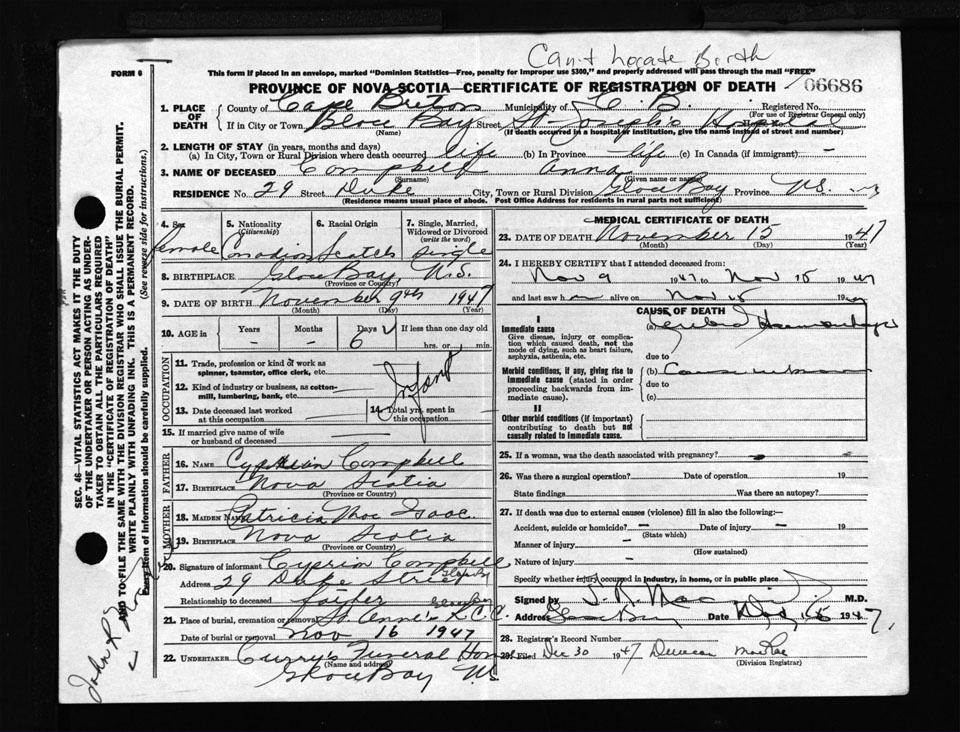 Can't Locate Birth
FORM 6
This form if placed in an envelope, marked "Dominion Statistics—Free, penalty for improper use $300," and properly addressed will pass through the mail "FREE"
PROVINCE OF NOVA SCOTIA—CERTIFICATE OF REGISTRATION OF DEATH
06686
1. PLACE OF DEATH
County of Cape Breton Municipality of C. B. Registered No.
(For use of Registrar General only)
If in City or Town Glace Bay Street St. Joseph's Hospital
(Name) (If death occurred in a hospital or institution, give the name instead of street and number)
2. LENGTH OF STAY (in years, months and days)
(a) In City, Town or Rural Division where death occurred life (b) In Province life (c) In Canada (if immigrant) -
3. NAME OF DECEASED Campbell Anna
(Surname) (Given name or names)
RESIDENCE No. 29 Street Duke City, Town or Rural Division Glace Bay Province N.S.
(Residence means usual place of abode. Post Office Address for residents in rural parts not sufficient)
4. Sex
female
5. Nationality (Citizenship)
Canadian
6. Racial Origin
Scotch
7. Single, Married, Widowed or Divorced (write the word)
Single
8. BIRTHPLACE Glace Bay N.S.
(Province or Country)
9. DATE OF BIRTH November 9th 1947
(Month) (Day) (Year)
10. AGE in Years Months Days If less than one day old
- - 6 hrs. or min.
OCCUPATION
11. Trade, profession or kind of work as spinner, teamster, office clerk, etc.
12. Kind of industry or business, as cotton-mill, lumbering, bank, etc.
Infant
13. Date deceased last worked at this occupation
14. Total yrs. spent in this occupation
15. If married give name of wife or husband of deceased
FATHER
16. NAME Cyprian Campbell
17. BIRTHPLACE Nova Scotia
(Province or Country)
MOTHER
18. MAIDEN NAME Patricia Mac Isaac
19. BIRTHPLACE Nova Scotia
(Province or Country)
20. Signature of informant Cyprin Campbell
Address 29 Duke Street Glace Bay
Relationship to deceased father
21. Place of burial, cremation or removal St. Anne's R.C.C. Glace Bay
Date of burial or removal Nov 16 1947
22. UNDERTAKER Curry's Funeral Home
(Name and address)
Glace Bay N.S.
MEDICAL CERTIFICATE OF DEATH
23. DATE OF DEATH November 15 1947
(Month) (Day) (Year)
24. I HEREBY CERTIFY that I attended deceased from:
Nov 9 1947 to Nov 15 1947
and last saw h alive on Nov 15 19
CAUSE OF DEATH
I
Immediate cause
Give disease, injury or complication which caused death, not the mode of dying, such as heart failure, asphyxia, asthenia, etc.
(a) Cerebral Haemorrhage
due to
Morbid conditions, if any, giving rise to immediate cause (stated in order proceeding backwards from immediate cause).
(b)
due to
(c)
II
Other morbid conditions (if important) contributing to death but not causally related to immediate cause.
25. If a woman, was the death associated with pregnancy?
26. Was there a surgical operation? - Date of operation 19
State findings Was there an autopsy?
27. If death was due to external causes (violence) fill in also the following:—
Accident, suicide or homicide? - Date of injury - 19
(State which)
Manner of injury -
(How sustained)
Nature of injury -
Specify whether injury occurred in industry, in home, or in public place
Signed by M.D.
Address Glace Bay Date 1947
28. Registrar's Record Number
29. Filed Dec 30 1947 Duncan MacRae
(Division Registrar)
SEC. 46—VITAL STATISTICS ACT MAKES IT THE DUTY
OF THE UNDERTAKER OR PERSON ACTING AS UNDER-
TAKER TO OBTAIN ALL THE PARTICULARS REQUIRED
IN THE "CERTIFICATE OF REGISTRATION OF DEATH"
AND TO FILE THE SAME WITH THE DIVISION REGISTRAR WHO SHALL ISSUE THE BURIAL PERMIT.
WRITE PLAINLY WITH UNFADING INK. THIS IS A PERMANENT RECORD.
Every item of information should be carefully supplied. (See reverse side for instructions.)